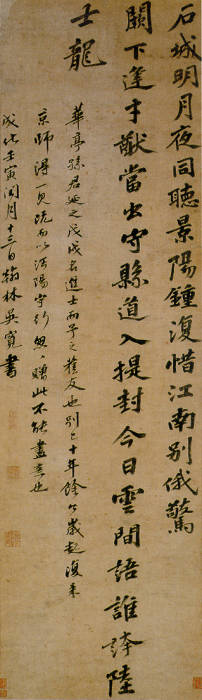 石城明月夜同聽景陽鍾復惜江南別俄驚
闕下逢才猷當出守縣道入提封今日雲間語誰誇陸
士龍
華亭孫君延之戊戌名進士而予之舊友也別已十年餘今歲起復來
京師得一見既而以沔陽守行匆匆贈此不能盡意也
成化壬寅閏月十三日翰林吳寬書